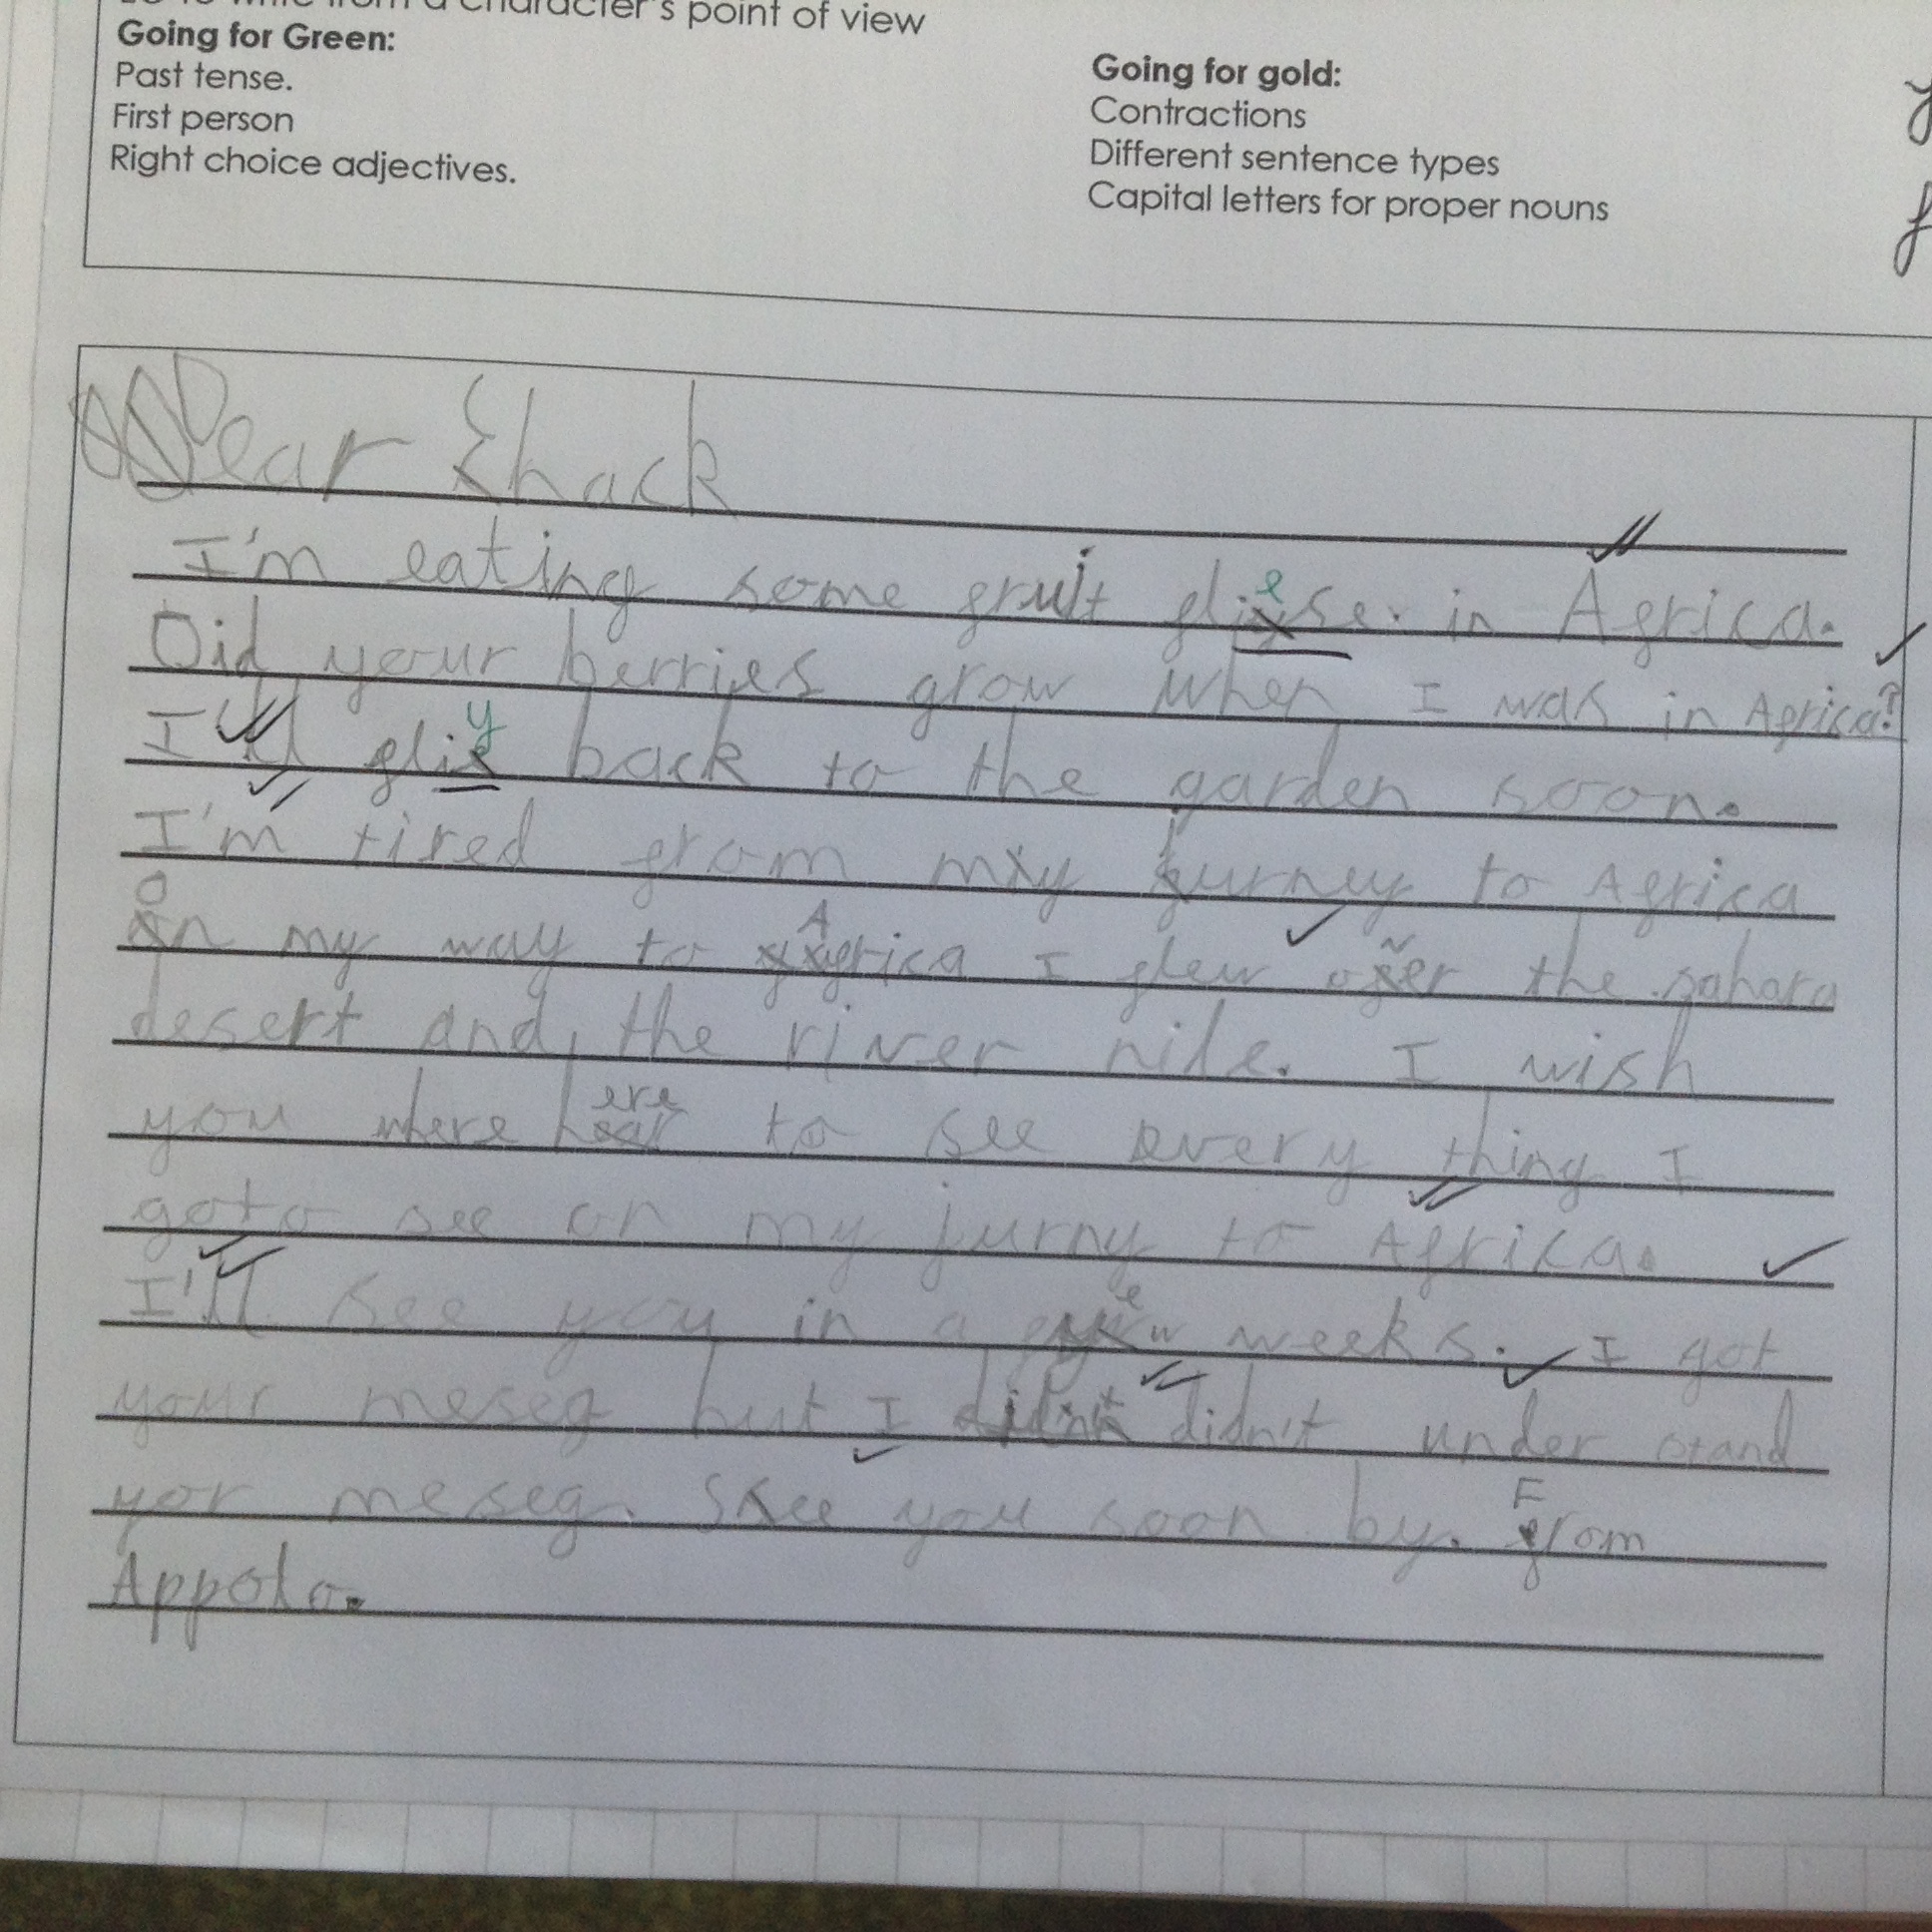 character's point of view
Going for Green:
Past tense.
First person
Right choice adjectives.
Going for gold:
Contractions
Different sentence types
Capital letters for proper nouns
Dear Shack
I'm eating some fruit flies. in Africa.
Did your berries grow when I was in Africa?
I'll fly back to the garden soon.
I'm tired from my jurney to Africa
On my way to Africa I flew over the sahara
desert and the river nile. I wish
you where here to see every thing I
goto see on my jurny to Africa.
I'll see you in a few weeks. I got
your meseg but I didn't under stand
yor meseg. See you soon by. From
Appolo.